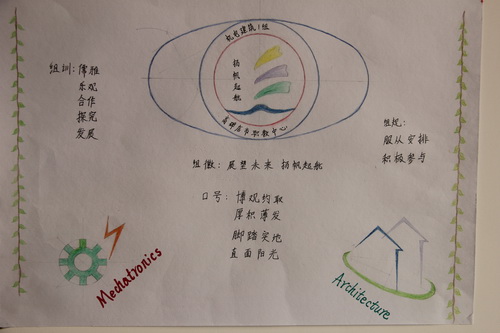 机电建筑1组
扬帆起航
高碑店市职教中心
组训：儒雅
乐观
合作
探究
发展
组规：
服从安排
积极参与
组徽：展望未来 扬帆起航
口号：博观约取
厚积薄发
脚踏实地
直面阳光
Mechatronics
Architecture